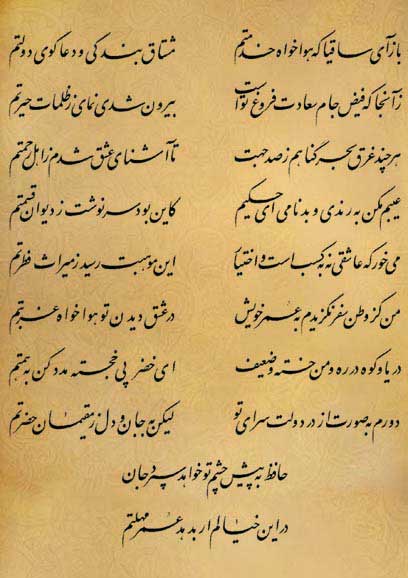 بازآی ساقیا که هواخواه خدمتم مشتاق بندگی و دعاگوی دولتم
زآنجا که فیض جام سعادت فروغ توست بیرون شدی نمای ز ظلمات حیرتم
هرچند غرق بحر گناهم ز صد جهت تا آشنای عشق شدم ز اهل رحمتم
عیبم مکن به رندی و بدنامی ای حکیم کاین بود سرنوشت ز دیوان قسمتم
می خور که عاشقی نه به کسب است و اختیار این موهبت رسید ز میراث فطرتم
من کز وطن سفر نگزیدم به عمر خویش در عشق دیدن تو هواخواه غربتم
دریا و کوه در ره و من خسته و ضعیف ای خضر پی خجسته مدد کن به همتم
دورم به صورت از در دولت سرای تو لیکن به جان و دل ز مقیمان حضرتم
حافظ به پیش چشم تو خواهد سپرد جان
در این خیالم ار بدهد عمر مهلتم